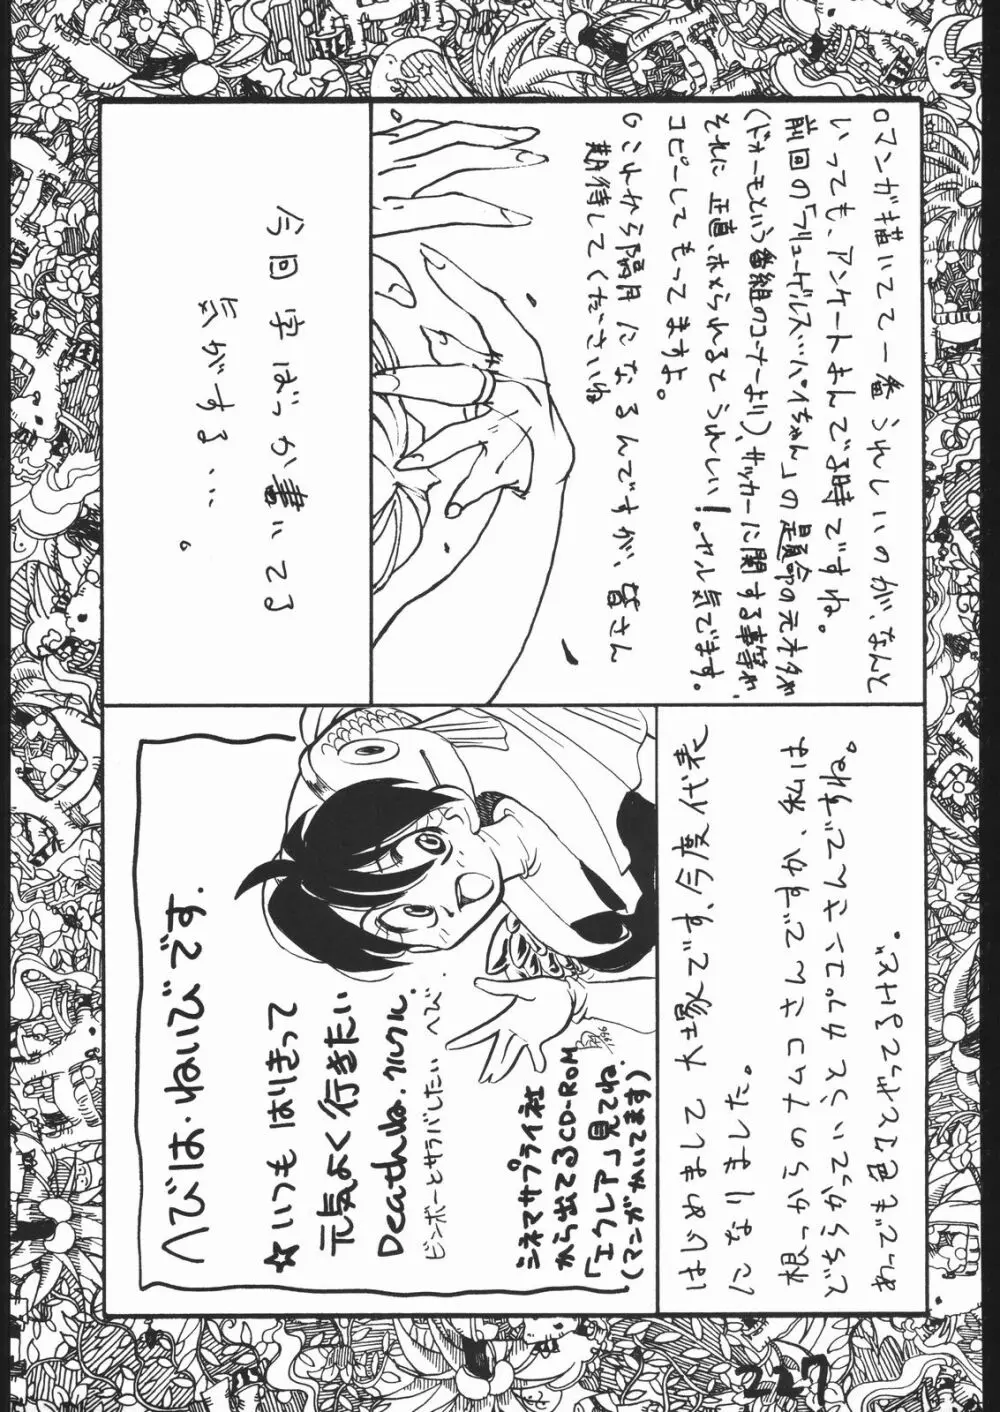 ロマンガ描いてて一番うれしいのが、なんと
いっても、アンケートまんでる時ですね。
前回の「ブリュードルスッパイちゃん」の
（ドォーモという番組のコーナーより）、サッカーに関する事等が、
それに正直、ホメられるとうれしい!。ヤル気でます。
コピーしてもってますよ。
これから隔月になるんですが、皆さん
期待してくださいね
今回字ばっか書いてる
気がする…。
はじめまして大塚です、今度代表
になりました。
根っからのナムコさんですか
どちらかっていうとカプコンさんでですね。
あってでも色々とやってるケド。
へびは・ねいびです.
☆いつもはりきって
元気よく行きたい
Deathね.クルクル.
ビンボーとサラバしたいへび.
シネマサプライ社
から出てるCD-ROM
「エクレア」見てね.
(マンガかいてます)
227